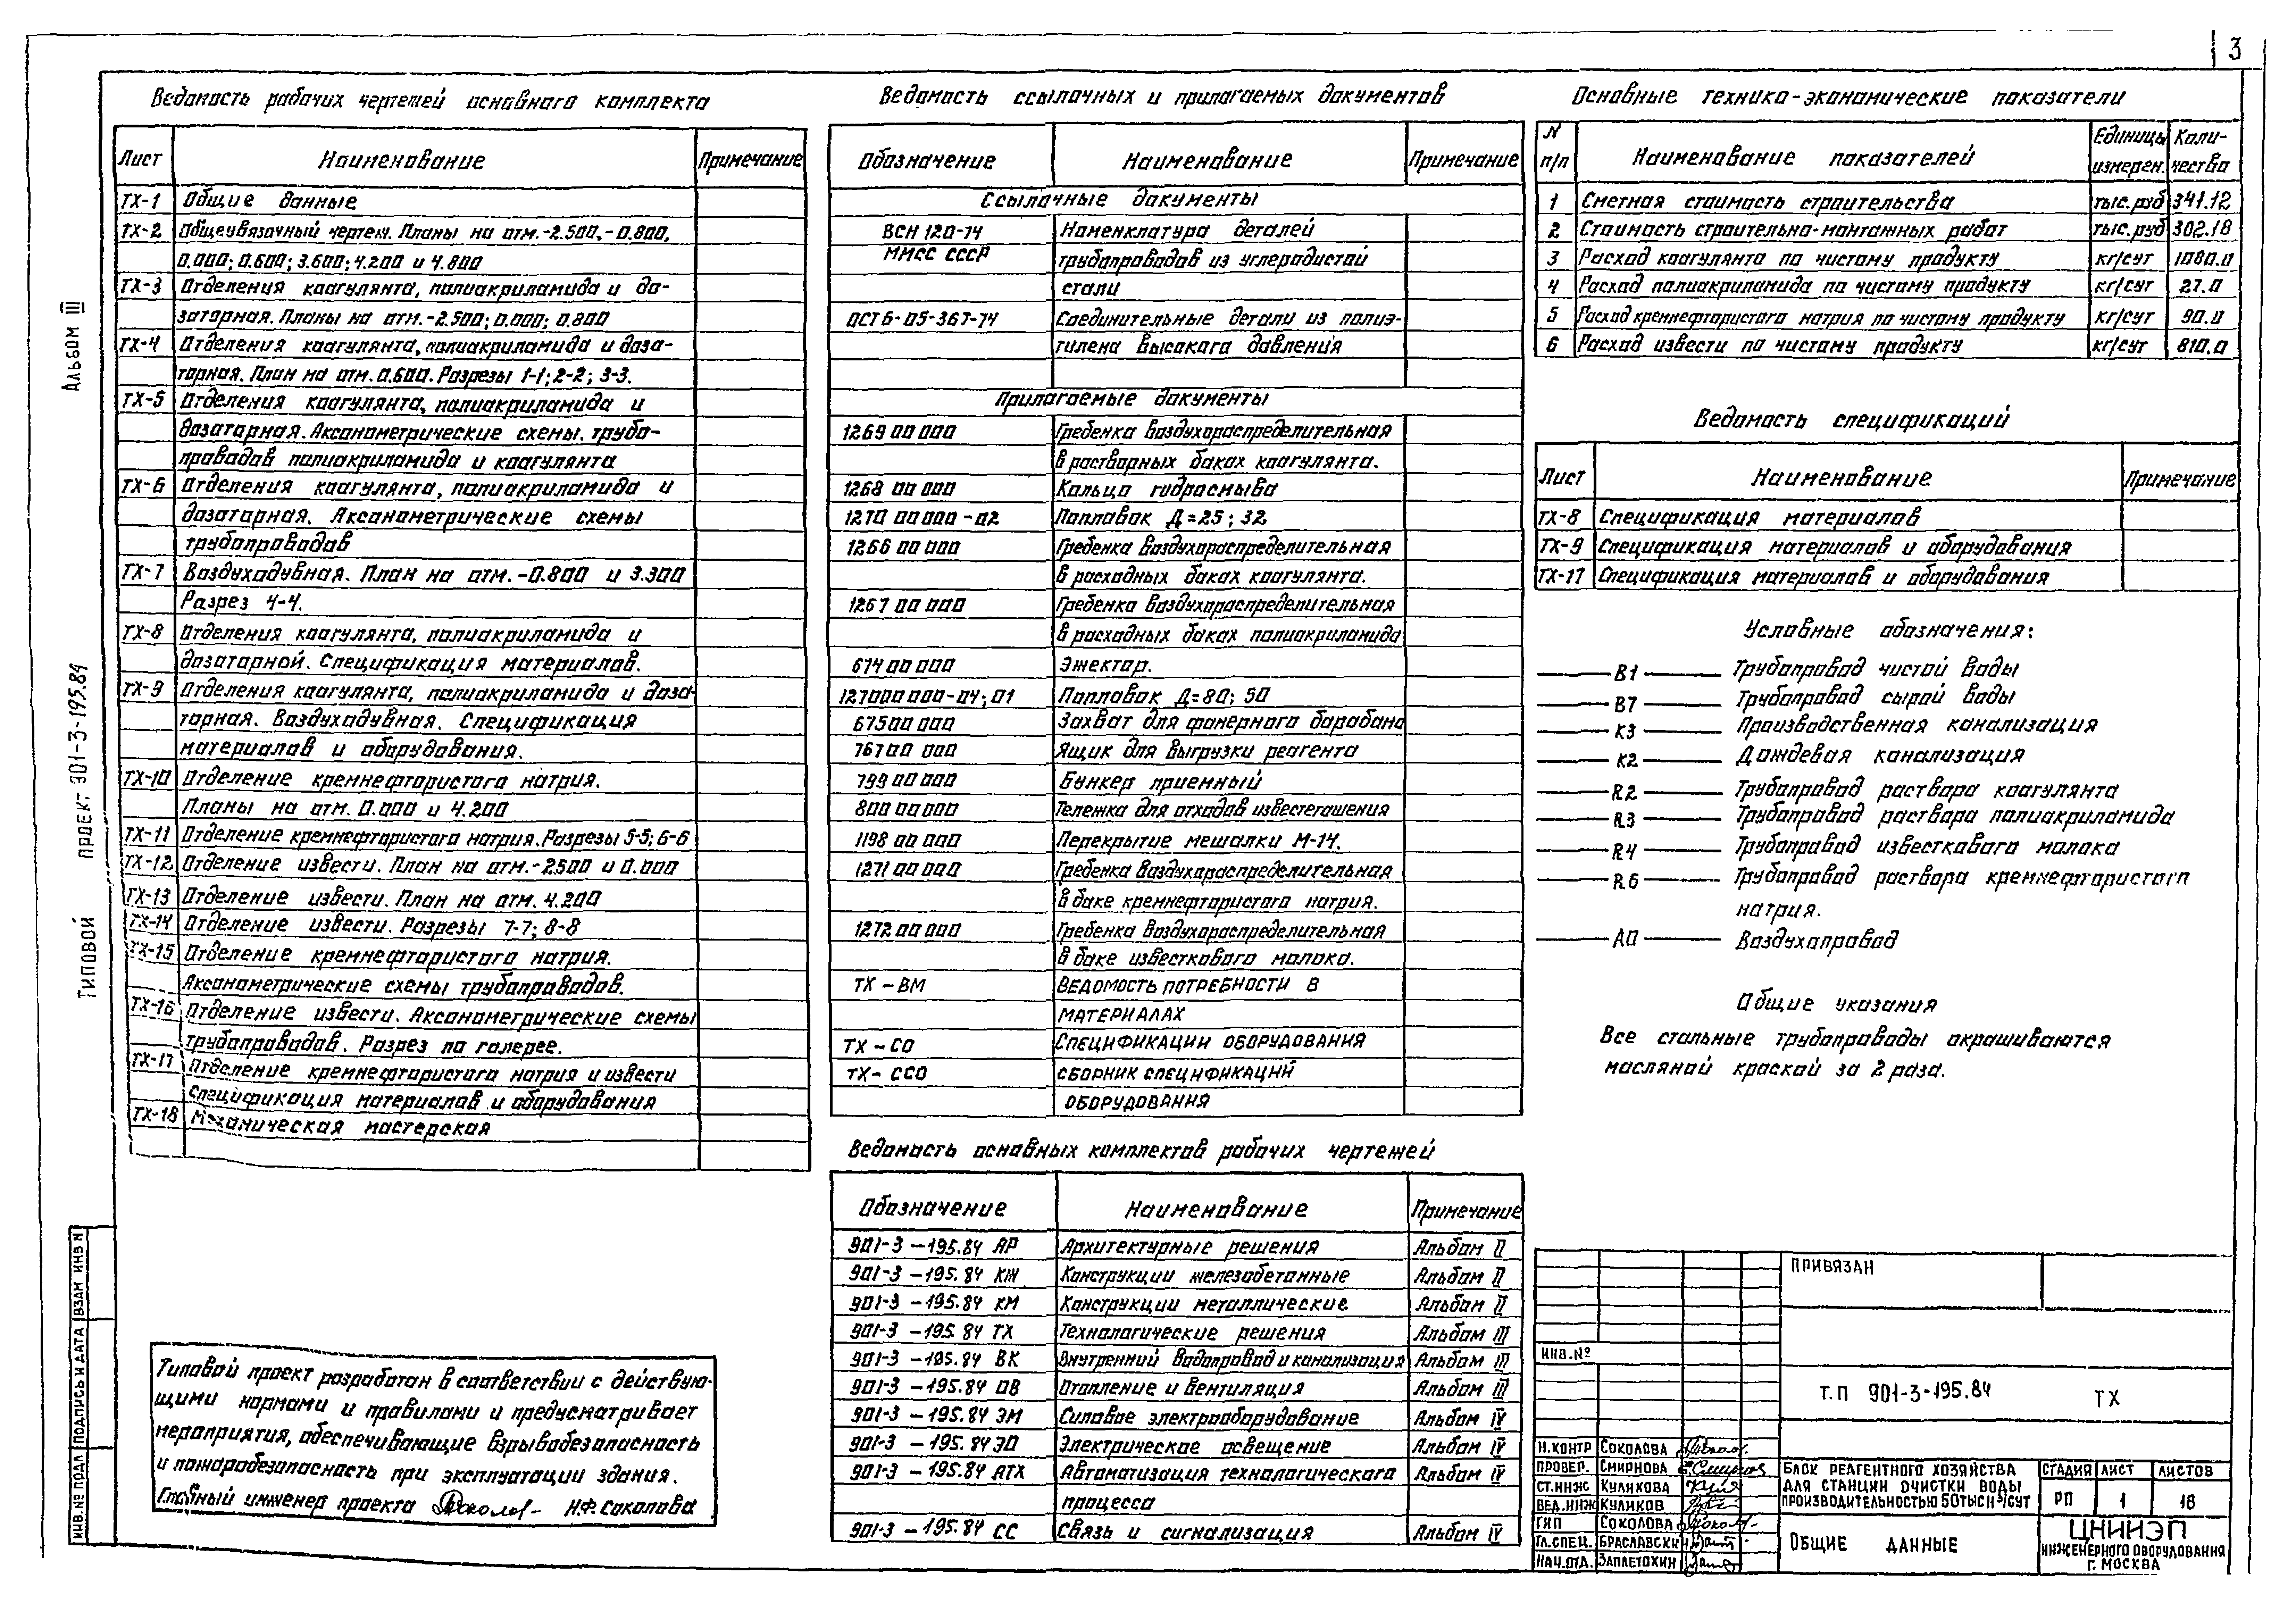 3
Ведомость рабочих чертежей основного комплекта
Лист Наименование Примечание
ТХ-1 Общие данные
ТХ-2 Общеувязочный чертеж. Планы на отм.-2.500,-0.800,
0.000; 0.600; 3.600; 4.200 и 4.800
ТХ-3 Отделения коагулянта, полиакриламида и до-
заторная. Планы на отм.-2.500; 0.000; 0.800
ТХ-4 Отделения коагулянта, полиакриламида и доза-
торная. План на отм. 0.600. Разрезы 1-1; 2-2; 3-3.
ТХ-5 Отделения коагулянта, полиакриламида и
дозаторная. Аксонометрические схемы. трубо-
проводов полиакриламида и коагулянта
ТХ-6 Отделения коагулянта, полиакриламида и
дозаторная. Аксонометрические схемы
трубопроводов
ТХ-7 Воздуходувная. План на отм. -0.800 и 3.300
Разрез 4-4.
ТХ-8 Отделения коагулянта, полиакриламида и
дозаторной. Спецификация материалов.
ТХ-9 Отделения коагулянта, полиакриламида и доза-
торная. Воздуходувная. Спецификация
материалов и оборудования.
ТХ-10 Отделение кремнефтористого натрия.
Планы на отм. 0.000 и 4.200
ТХ-11 Отделение кремнефтористого натрия. Разрезы 5-5; 6-6
ТХ-12 Отделение извести. План на отм.-2.500 и 0.000
ТХ-13 Отделение извести. План на отм. 4.200
ТХ-14 Отделение извести. Разрезы 7-7; 8-8
ТХ-15 Отделение кремнефтористого натрия.
Аксонометрические схемы трубопроводов.
ТХ-16 Отделение извести. Аксонометрические схемы
трубопроводов. Разрез по галерее.
ТХ-17 Отделение кремнефтористого натрия и извести
Спецификация материалов и оборудования
ТХ-18 Механическая мастерская
Типовой проект разработан в соответствии с действую-
щими нормами и правилами и предусматривает
мероприятия, обеспечивающие взрывобезопасность
и пожаробезопасность при эксплуатации здания.
Главный инженер проекта Н.Ф. Соколова
Альбом III
Типовой проект 901-3-195.84
ИНВ. № ПОДЛ ПОДПИСЬ И ДАТА ВЗАМ ИНВ N
Ведомость ссылочных и прилагаемых документов
Обозначение Наименование Примечание
Ссылочные документы
ВСН 120-74 Номенклатура деталей
ММСС СССР трубопроводов из углеродистой
стали
ОСТ 6-05-367-74 Соединительные детали из полиэ-
тилена высокого давления
Прилагаемые документы
1269 00 000 Гребенка воздухораспределительная
в растворных баках коагулянта.
1268 00 000 Кольцо гидросмыва
1270 00 000-02 Поплавок Д=25; 32
1266 00 000 Гребенка воздухораспределительная
в расходных баках коагулянта.
1267 00 000 Гребенка воздухораспределительная
в расходных баках полиакриламида
674 00 000 Эжектор.
1270 00 000-04; 01 Поплавок Д=80; 50
675 00 000 Захват для фанерного барабана
767 00 000 Ящик для выгрузки реагента
799 00 000 Бункер приемный
800 00 000 Тележка для отходов известегашения
1198 00 000 Перекрытие мешалки М-14.
1271 00 000 Гребенка воздухораспределительная
в баке кремнефтористого натрия.
1272 00 000 Гребенка воздухораспределительная
в баке известкового молока.
ТХ-ВМ ВЕДОМОСТЬ ПОТРЕБНОСТИ В
МАТЕРИАЛАХ
ТХ-СО СПЕЦИФИКАЦИИ ОБОРУДОВАНИЯ
ТХ-ССО СБОРНИК СПЕЦИФИКАЦИЙ
ОБОРУДОВАНИЯ
Ведомость основных комплектов рабочих чертежей
Обозначение Наименование Примечание
901-3-195.84 АР Архитектурные решения Альбом II
901-3-195.84 КЖ Конструкции железобетонные Альбом II
901-3-195.84 КМ Конструкции металлические Альбом II
901-3-195.84 ТХ Технологические решения Альбом III
901-3-195.84 ВК Внутренний водопровод и канализация Альбом III
901-3-195.84 ОВ Отопление и вентиляция Альбом III
901-3-195.84 ЭМ Силовое электрооборудование Альбом IV
901-3-195.84 ЭО Электрическое освещение Альбом IV
901-3-195.84 АТХ Автоматизация технологического Альбом IV
процесса
901-3-195.84 СС Связь и сигнализация Альбом IV
Основные технико-экономические показатели
N п/п Наименование показателей Единицы измерен. Коли-чество
1 Сметная стоимость строительства тыс. руб 341.12
2 Стоимость строительно-монтажных работ тыс. руб 302.18
3 Расход коагулянта по чистому продукту кг/сут 1080.0
4 Расход полиакриламида по чистому продукту кг/сут 27.0
5 Расход кремнефтористого натрия по чистому продукту кг/сут 90.0
6 Расход извести по чистому продукту кг/сут 810.0
Ведомость спецификаций
Лист Наименование Примечание
ТХ-8 Спецификация материалов
ТХ-9 Спецификация материалов и оборудования
ТХ-17 Спецификация материалов и оборудования
Условные обозначения:
В1 Трубопровод чистой воды
В7 Трубопровод сырой воды
К3 Производственная канализация
К2 Дождевая канализация
R2 Трубопровод раствора коагулянта
R3 Трубопровод раствора полиакриламида
R4 Трубопровод известкового молока
R6 Трубопровод раствора кремнефтористого
натрия.
А0 Воздухопровод
Общие указания
Все стальные трубопроводы окрашиваются
масляной краской за 2 раза.
ПРИВЯЗАН
ИНВ. №
Т.П 901-3-195.84 ТХ
Н.КОНТР СОКОЛОВА
ПРОВЕР. СМИРНОВА
СТ.ИНЖ КУЛИКОВА
ВЕД.ИНЖ КУЛИКОВ
ГИП СОКОЛОВА
ГЛ.СПЕЦ. БРАСЛАВСКИЙ
НАЧ.ОТД. ЗАПЛЕТОХИН
БЛОК РЕАГЕНТНОГО ХОЗЯЙСТВА
ДЛЯ СТАНЦИИ ОЧИСТКИ ВОДЫ
ПРОИЗВОДИТЕЛЬНОСТЬЮ 50 ТЫС М³/СУТ
СТАДИЯ ЛИСТ ЛИСТОВ
РП 1 18
ОБЩИЕ ДАННЫЕ
ЦНИИЭП
ИНЖЕНЕРНОГО ОБОРУДОВАНИЯ
Г. МОСКВА